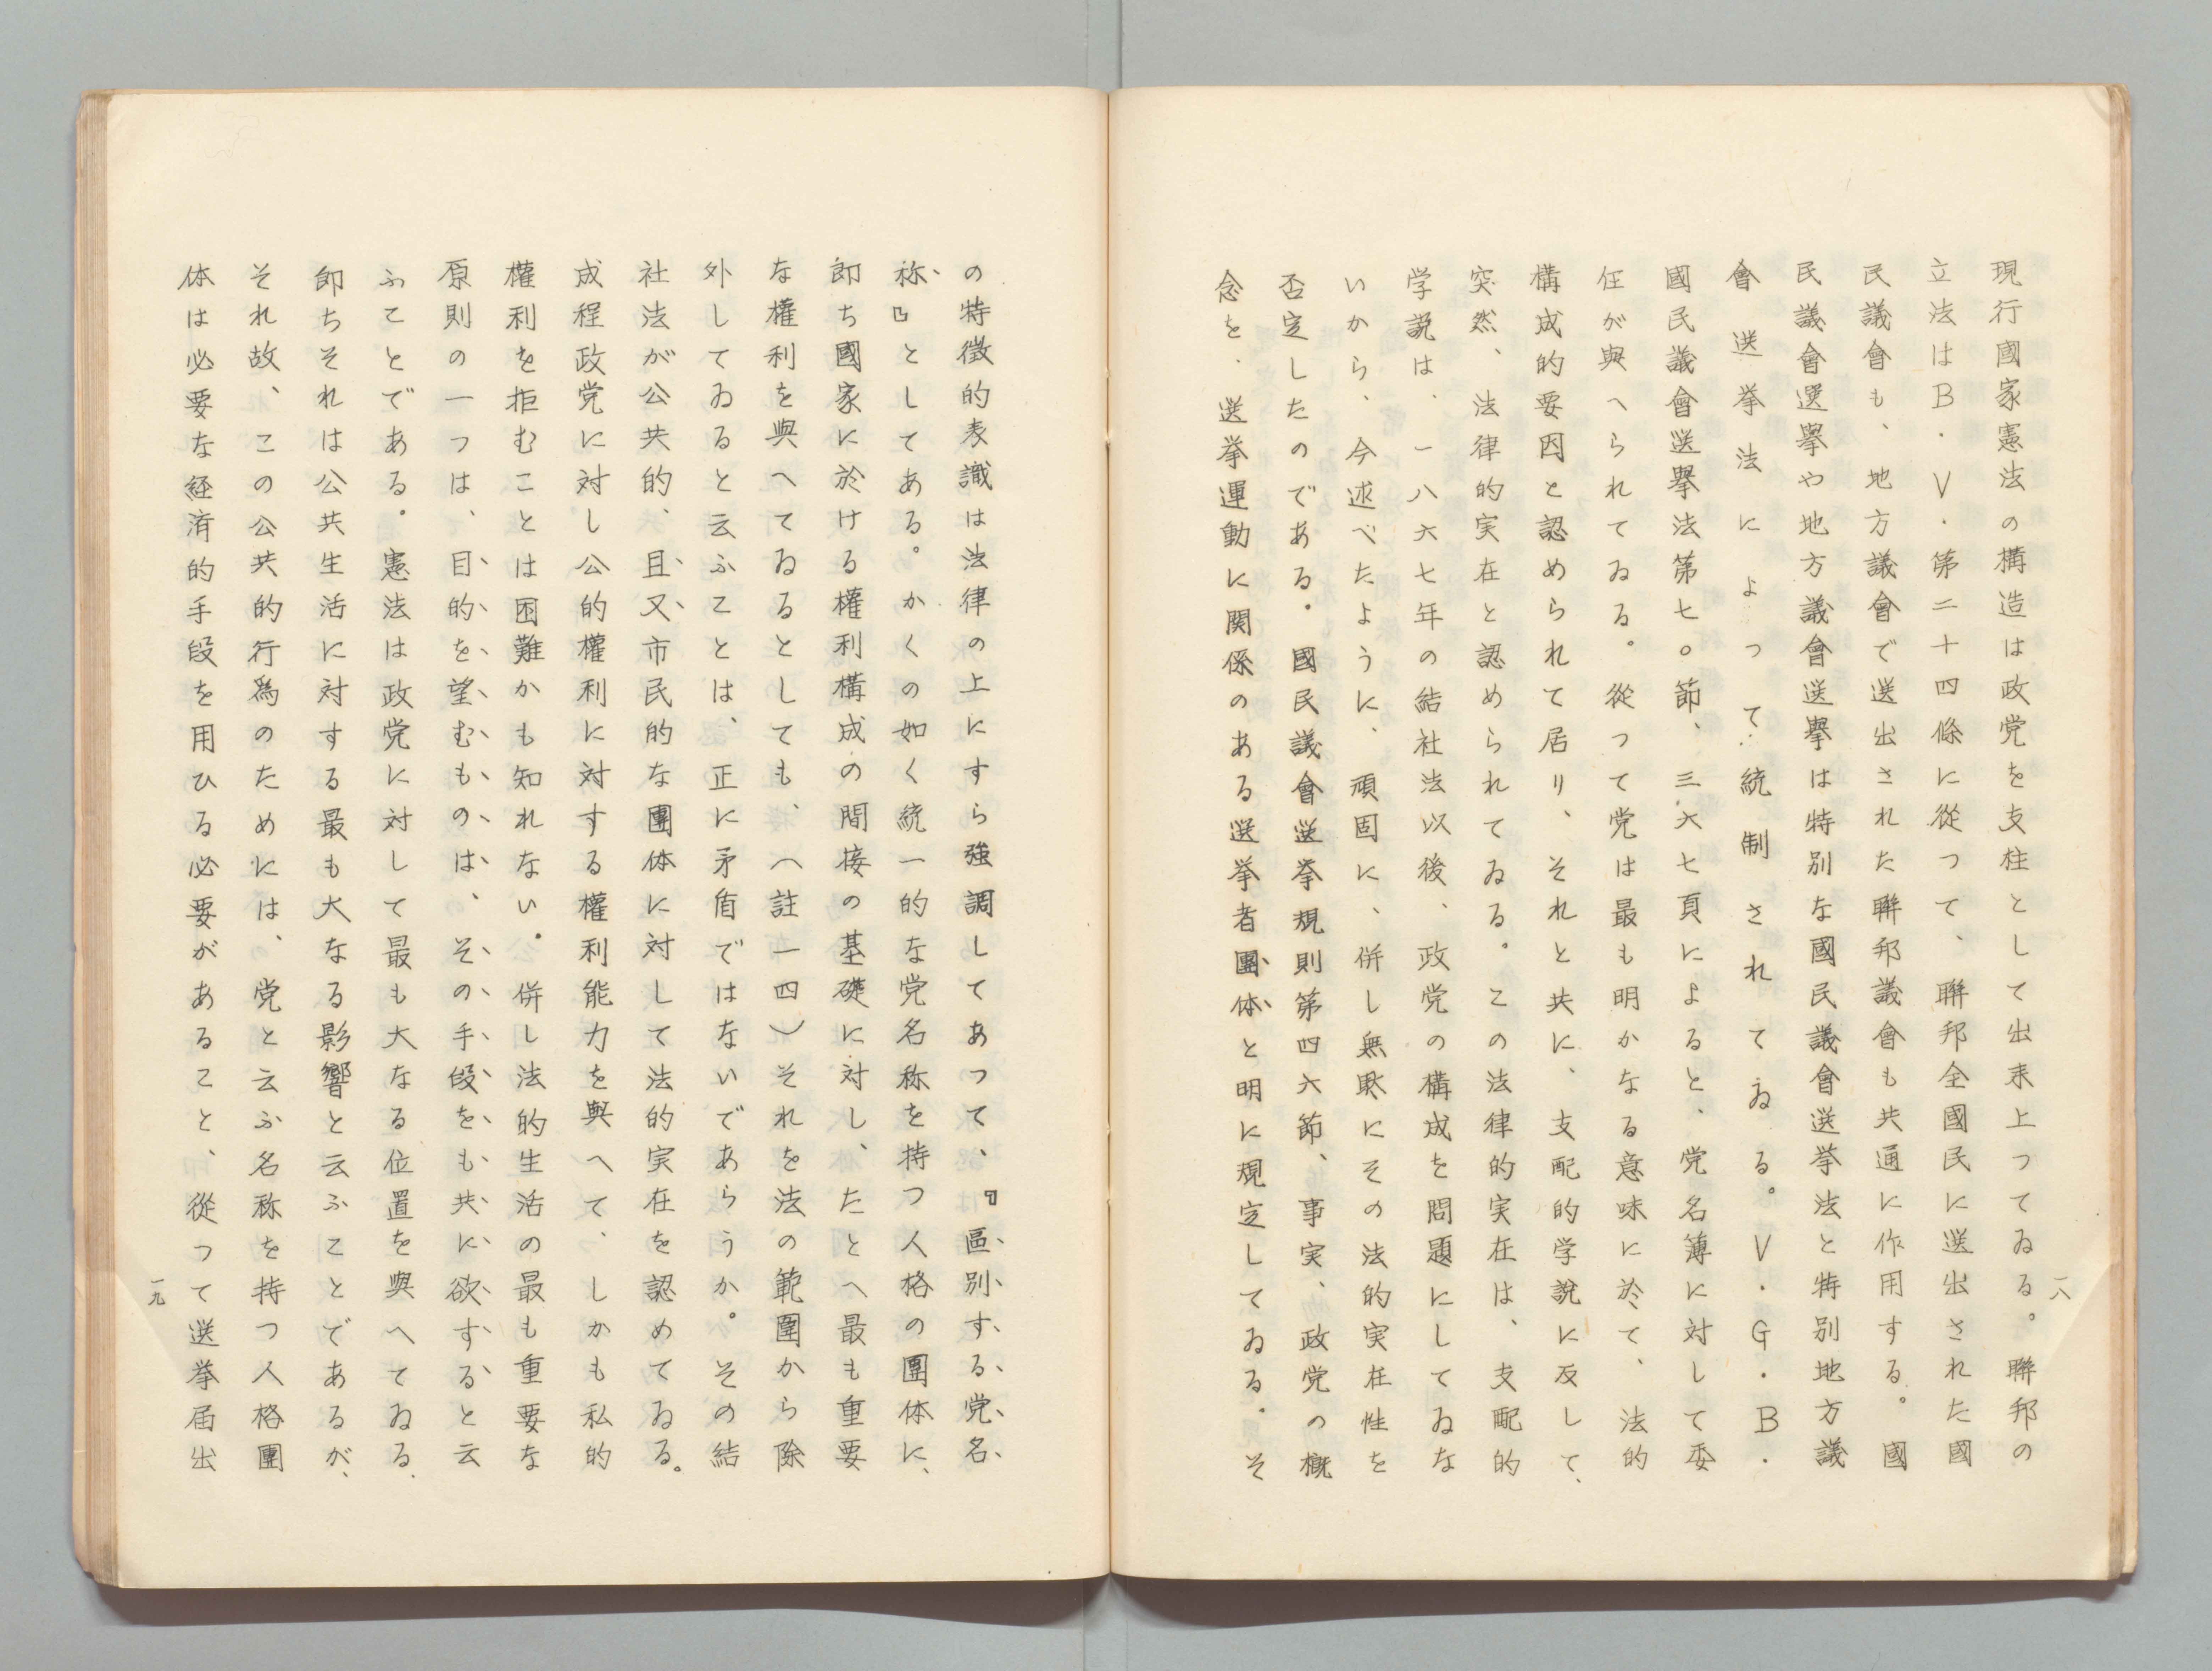 現行國家憲法の構造は政党を支柱として出来上つてゐる。聯邦の
立法はB.V.第二十四條に從つて、聯邦全國民に選出された國
民議會も、地方議會で選出された聯邦議會も共通に作用する。國
民議會選擧や地方議會選擧は特別な國民議會選挙法と特別地方議
會選挙法によつて統制されてゐる。V.G.B.
國民議會選擧法第七〇節、三六七頁によると、党名簿に対して委
任が與へられてゐる。從つて党は最も明かなる意味に於て、法的
構成的要因と認められて居り、それと共に、支配的学説に反して、
突然、法律的実在と認められてゐる。この法律的実在は、支配的
学説は、一八六七年の結社法以後、政党の構成を問題にしてゐな
いから、今述べたように、頑固に、併し無駄にその法的実在性を
否定したのである。國民議會選挙規則第四六節、事実、政党の概
念を、選挙運動に関係のある選挙者團体と明に規定してゐる。そ
一八
の特徴的表識は法律の上にすら強調してあつて、『區別する党名
称』としてある。かくの如く統一的な党名称を持つ人格の團体に、
即ち國家に於ける權利構成の間接の基礎に対し、たとへ最も重要
な權利を與へてゐるとしても、(註一四)それを法の範圍から除
外してゐると云ふことは、正に矛盾ではないであらうか。その結
社法が公共的、且又市民的な團体に対して法的実在を認めてゐる。
成程政党に対し公的權利に対する權利能力を與へて、しかも私的
權利を拒むことは困難かも知れない。併し法的生活の最も重要な
原則の一つは、目的を望むものは、その手段をも共に欲すると云
ふことである。憲法は政党に対して最も大なる位置を與へてゐる、
即ちそれは公共生活に対する最も大なる影響と云ふことであるが、
それ故、この公共的行爲のためには、党と云ふ名称を持つ人格團
体は必要な経済的手段を用ひる必要があること、從つて選挙届出
一九